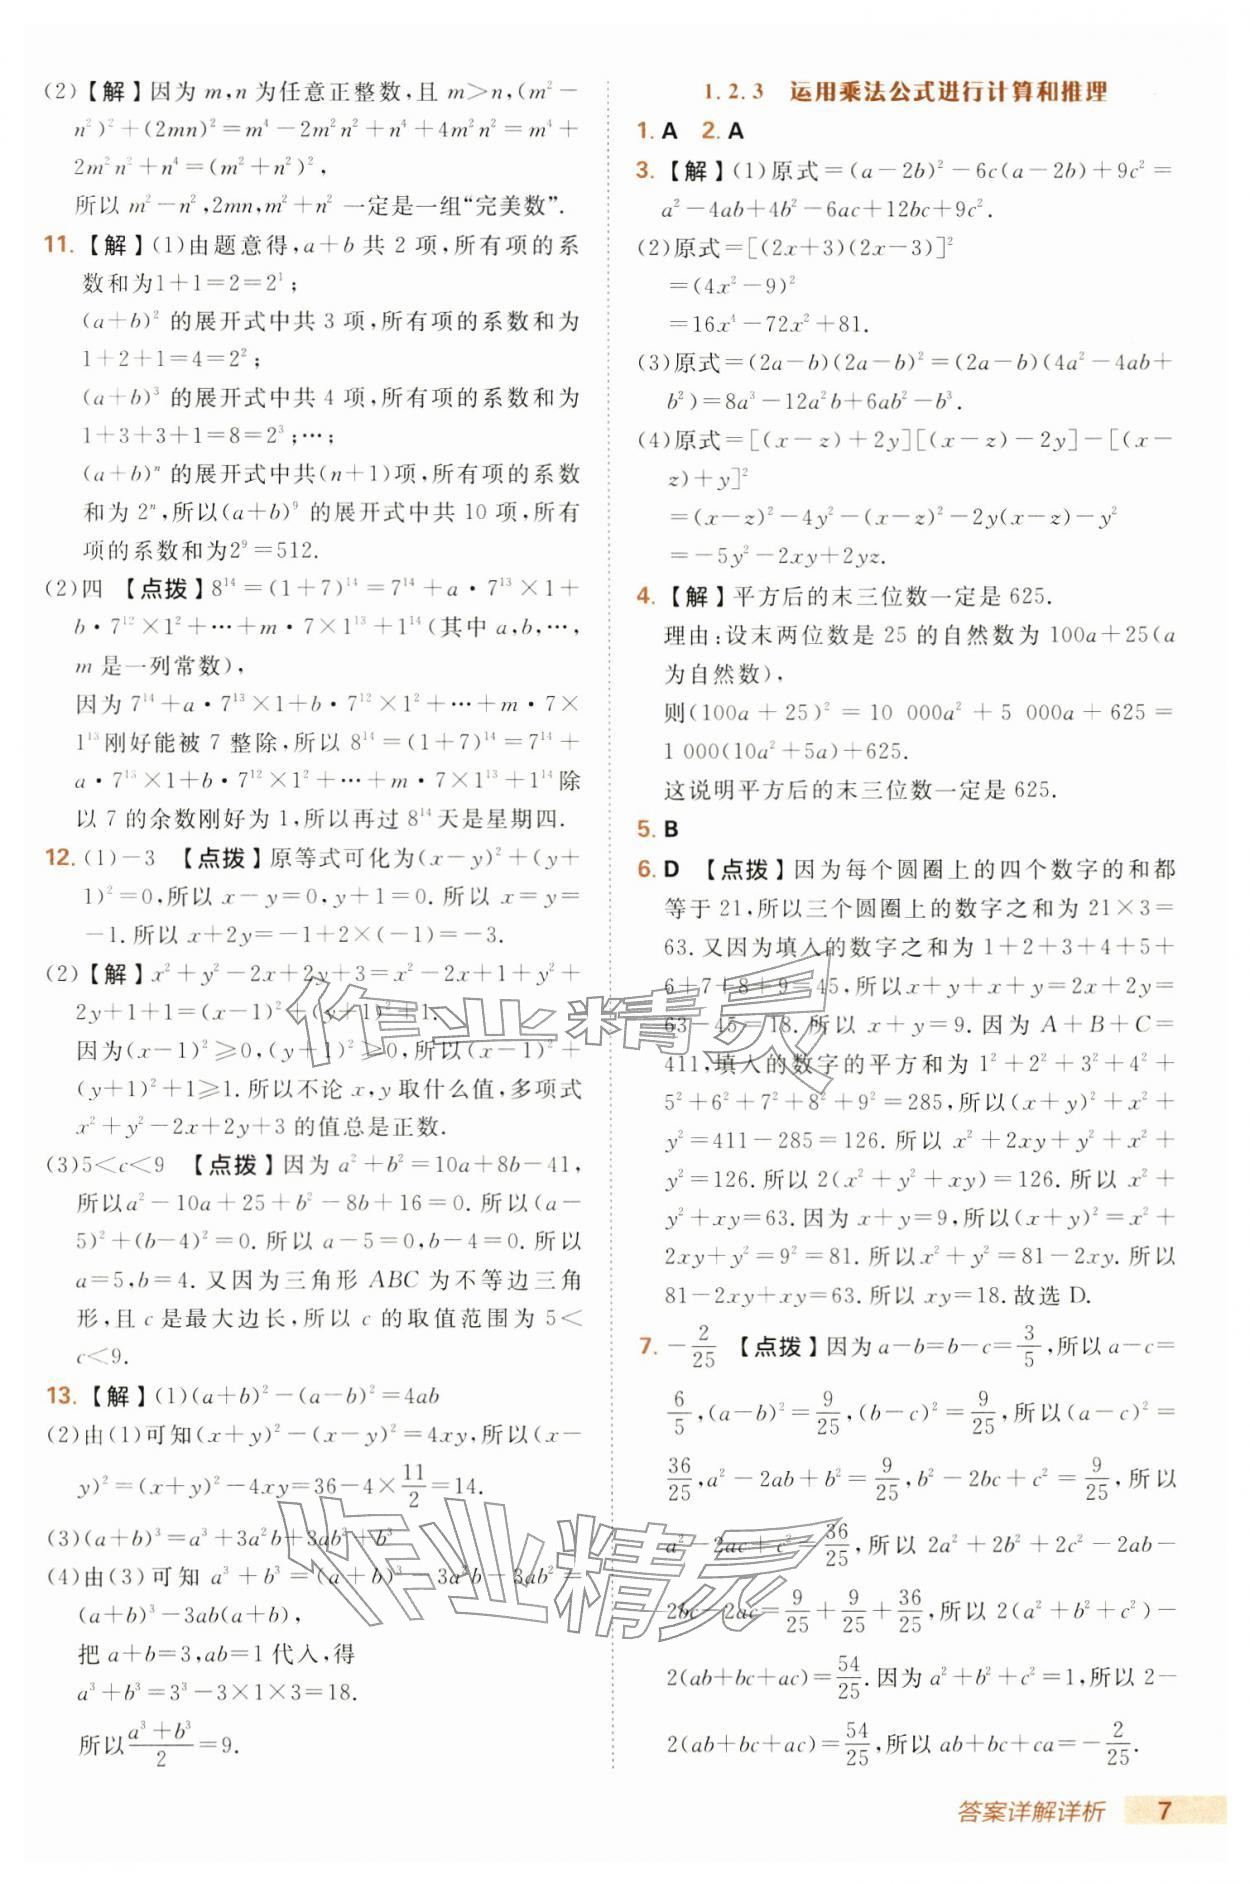 (2)【解】因为 m,n 为任意正整数,且 m>n,(m²−
n²)²+(2mn)²=m⁴−2m²n²+n⁴+4m²n²=m⁴+
2m²n²+n⁴=(m²+n²)²,
所以 m²−n²,2mn,m²+n² 一定是一组“完美数”.
11.【解】(1)由题意得,a+b 共 2 项,所有项的系
数和为1+1=2=2¹;
(a+b)² 的展开式中共 3 项,所有项的系数和为
1+2+1=4=2²;
(a+b)³ 的展开式中共 4 项,所有项的系数和为
1+3+3+1=8=2³;…;
(a+b)ⁿ 的展开式中共(n+1)项,所有项的系数
和为 2ⁿ,所以(a+b)⁹ 的展开式中共 10 项,所有
项的系数和为2⁹=512.
(2)四 【点拨】8¹⁴=(1+7)¹⁴=7¹⁴+a·7¹³×1+
b·7¹²×1²+…+m·7×1¹³+1¹⁴(其中 a,b,…,
m 是一列常数),
因为 7¹⁴+a·7¹³×1+b·7¹²×1²+…+m·7×
1¹³刚好能被 7 整除,所以 8¹⁴=(1+7)¹⁴=7¹⁴+
a·7¹³×1+b·7¹²×1²+…+m·7×1¹³+1¹⁴除
以 7 的余数刚好为 1,所以再过 8¹⁴天是星期四.
12.(1)−3 【点拨】原等式可化为(x−y)²+(y+
1)²=0,所以 x−y=0,y+1=0.所以 x=y=
−1.所以 x+2y=−1+2×(−1)=−3.
(2)【解】x²+y²−2x+2y+3=x²−2x+1+y²+
2y+1+1=(x−1)²+(y+1)²+1.
因为(x−1)²≥0,(y+1)²≥0,所以(x−1)²+
(y+1)²+1≥1.所以不论 x,y 取什么值,多项式
x²+y²−2x+2y+3 的值总是正数.
(3)5<c<9 【点拨】因为 a²+b²=10a+8b−41,
所以a²−10a+25+b²−8b+16=0.所以(a−
5)²+(b−4)²=0.所以 a−5=0,b−4=0.所以
a=5,b=4.又因为三角形 ABC 为不等边三角
形,且 c 是最大边长,所以 c 的取值范围为 5<
c<9.
13.【解】(1)(a+b)²−(a−b)²=4ab
(2)由(1)可知(x+y)²−(x−y)²=4xy,所以(x−
y)²=(x+y)²−4xy=36−4×11/2=14.
(3)(a+b)³=a³+3a²b+3ab²+b³
(4)由(3)可知 a³+b³=(a+b)³−3a²b−3ab²=
(a+b)³−3ab(a+b),
把 a+b=3,ab=1 代入,得
a³+b³=3³−3×1×3=18.
所以(a³+b³)/2=9.
1.2.3 运用乘法公式进行计算和推理
1.A 2.A
3.【解】(1)原式=(a−2b)²−6c(a−2b)+9c²=
a²−4ab+4b²−6ac+12bc+9c².
(2)原式=[(2x+3)(2x−3)]²
=(4x²−9)²
=16x⁴−72x²+81.
(3)原式=(2a−b)(2a−b)²=(2a−b)(4a²−4ab+
b²)=8a³−12a²b+6ab²−b³.
(4)原式=[(x−z)+2y][(x−z)−2y]−[(x−
z)+y]²
=(x−z)²−4y²−(x−z)²−2y(x−z)−y²
=−5y²−2xy+2yz.
4.【解】平方后的末三位数一定是 625.
理由:设末两位数是 25 的自然数为 100a+25(a
为自然数),
则(100a+25)²=10 000a²+5 000a+625=
1 000(10a²+5a)+625.
这说明平方后的末三位数一定是 625.
5.B
6.D 【点拨】因为每个圆圈上的四个数字的和都
等于 21,所以三个圆圈上的数字之和为 21×3=
63.又因为填入的数字之和为 1+2+3+4+5+
6+7+8+9=45,所以x+y+x+y=2x+2y=
63−45=18.所以 x+y=9.因为 A+B+C=
411,填入的数字的平方和为 1²+2²+3²+4²+
5²+6²+7²+8²+9²=285,所以(x+y)²+x²+
y²=411−285=126.所以 x²+2xy+y²+x²+
y²=126.所以 2(x²+y²+xy)=126.所以 x²+
y²+xy=63.因为 x+y=9,所以(x+y)²=x²+
2xy+y²=9²=81.所以x²+y²=81−2xy.所以
81−2xy+xy=63.所以 xy=18.故选 D.
7.−2/25 【点拨】因为 a−b=b−c=3/5,所以 a−c=
6/5,(a−b)²=9/25,(b−c)²=9/25,所以(a−c)²=
36/25,a²−2ab+b²=9/25,b²−2bc+c²=9/25,所以
a²−2ac+c²=36/25,所以 2a²+2b²+2c²−2ab−
2bc−2ac=9/25+9/25+36/25,所以 2(a²+b²+c²)−
2(ab+bc+ac)=54/25.因为 a²+b²+c²=1,所以 2−
2(ab+bc+ac)=54/25,所以 ab+bc+ca=−2/25.
作业精灵
作业精灵
答案详解详析 7